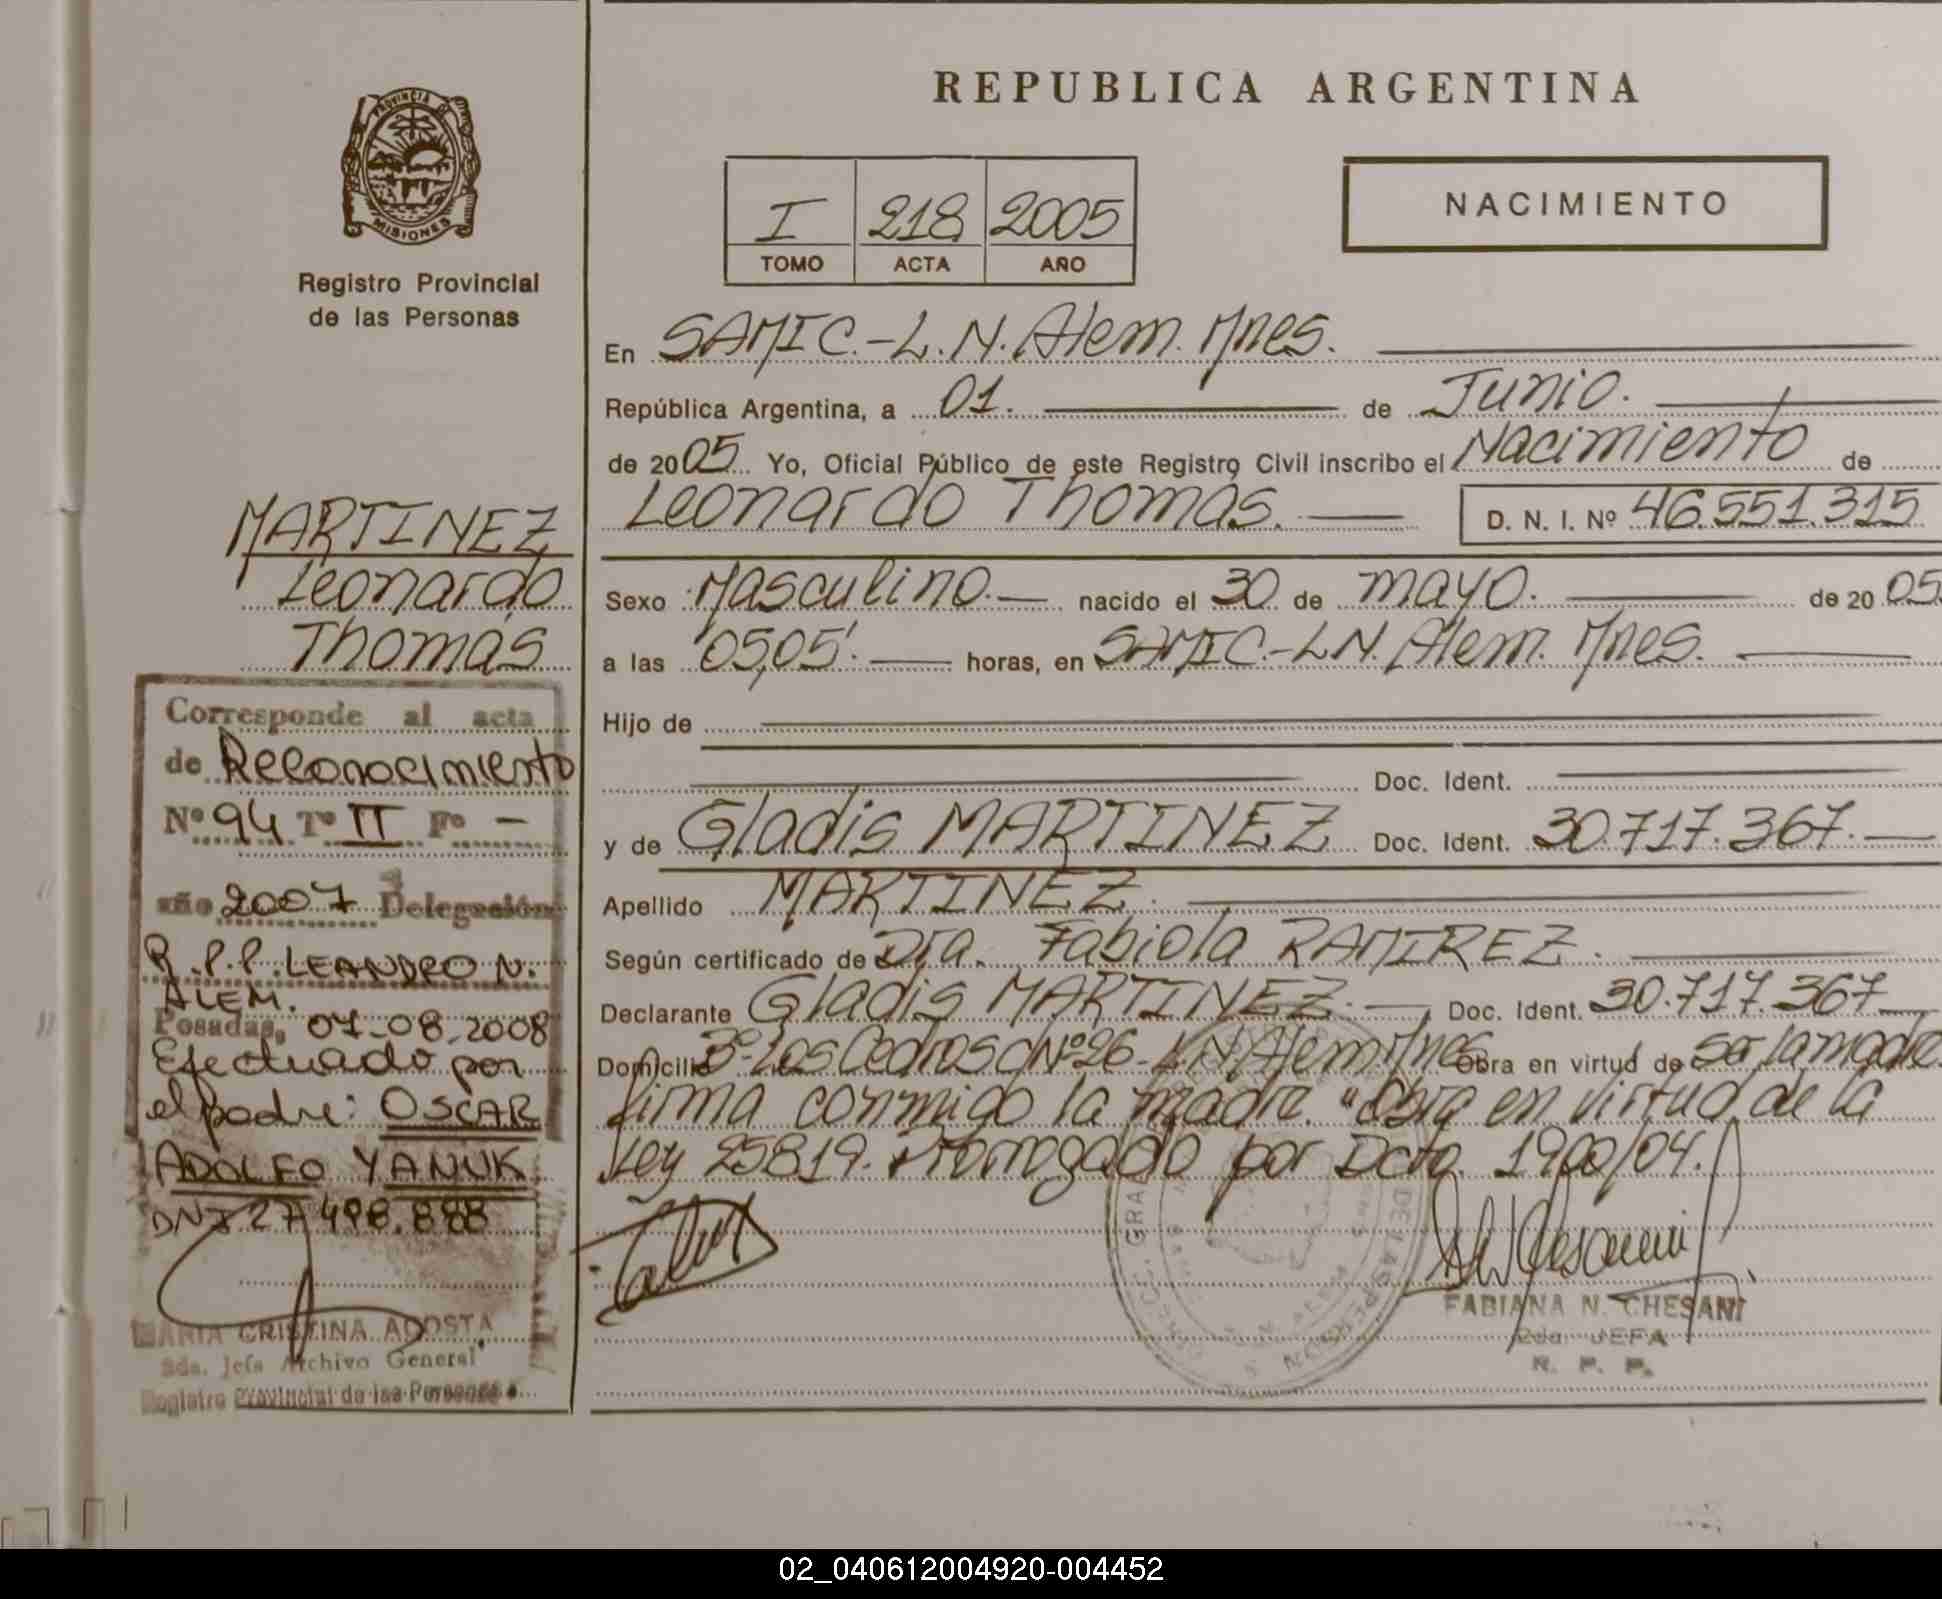 REPUBLICA ARGENTINA
PROVINCIA DE
MISIONES
Registro Provincial
de las Personas
I 218 2005
TOMO ACTA AÑO
NACIMIENTO
En SAMIC.-L.N. Alem. Mnes.
República Argentina, a 01. de Junio.
de 2005 Yo, Oficial Público de este Registro Civil inscribo el Nacimiento de
Leonardo Thomás. D. N. I. Nº 46.551.315
Sexo Masculino. nacido el 30 de mayo. de 2005
a las 05,05'. horas, en SAMIC.-L.N. Alem. Mnes.
Hijo de
Doc. Ident.
y de Gladis MARTINEZ Doc. Ident. 30.717.367.
Apellido MARTINEZ.
Según certificado de Dra. Fabiola RAMIREZ.
Declarante Gladis MARTINEZ. Doc. Ident. 30.717.367
Domicilio Bº Los Cedros c/Nº26- L.N. Alem. Mnes Obra en virtud de ser la madre
firma conmigo la madre. "Obra en virtud de la
Ley 25819. Prorrogado por Dcto. 1900/04.
FABIANA N. CHESANI
2da. JEFA
R. P. P.
MARTINEZ
Leonardo
Thomás
Corresponde al acta
de Reconocimiento
Nº 94 Tº II Fº -
año 2007 Delegación
R.P.P. LEANDRO N.
ALEM.
Posadas, 07-08-2008
Efectuado por
el padre: OSCAR
ADOLFO YANUK
DNI 27.498.888
MARIA CRISTINA ACOSTA
Sda. Jefa Archivo General
Registro Provincial de las Personas
02_040612004920-004452